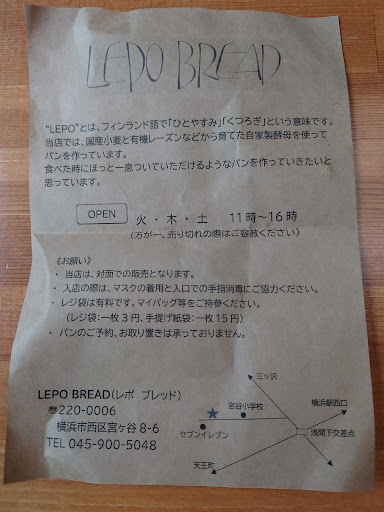 LEPO BREAD
"LEPO"とは、フィンランド語で「ひとやすみ」「くつろぎ」という意味です。
当店では、国産小麦と有機レーズンなどから育てた自家製酵母を使って
パンを作っています。
食べた時にほっと一息ついていただけるようなパンを作っていきたいと
思っています。
OPEN 火・木・土 11時～16時
(万が一、売り切れの際はご容赦ください)
《お願い》
・ 当店は、対面での販売となります。
・ 入店の際は、マスクの着用と入口での手指消毒にご協力ください。
・ レジ袋は有料です。マイバッグ等をご持参ください。
(レジ袋:一枚3円、手提げ紙袋:一枚15円)
・ パンのご予約、お取り置きは承っておりません。
LEPO BREAD(レポ ブレッド)
☎220-0006
横浜市西区宮ヶ谷 8-6
TEL 045-900-5048
三ッ沢
宮谷小学校
横浜駅西口
セブンイレブン
浅間下交差点
天王町